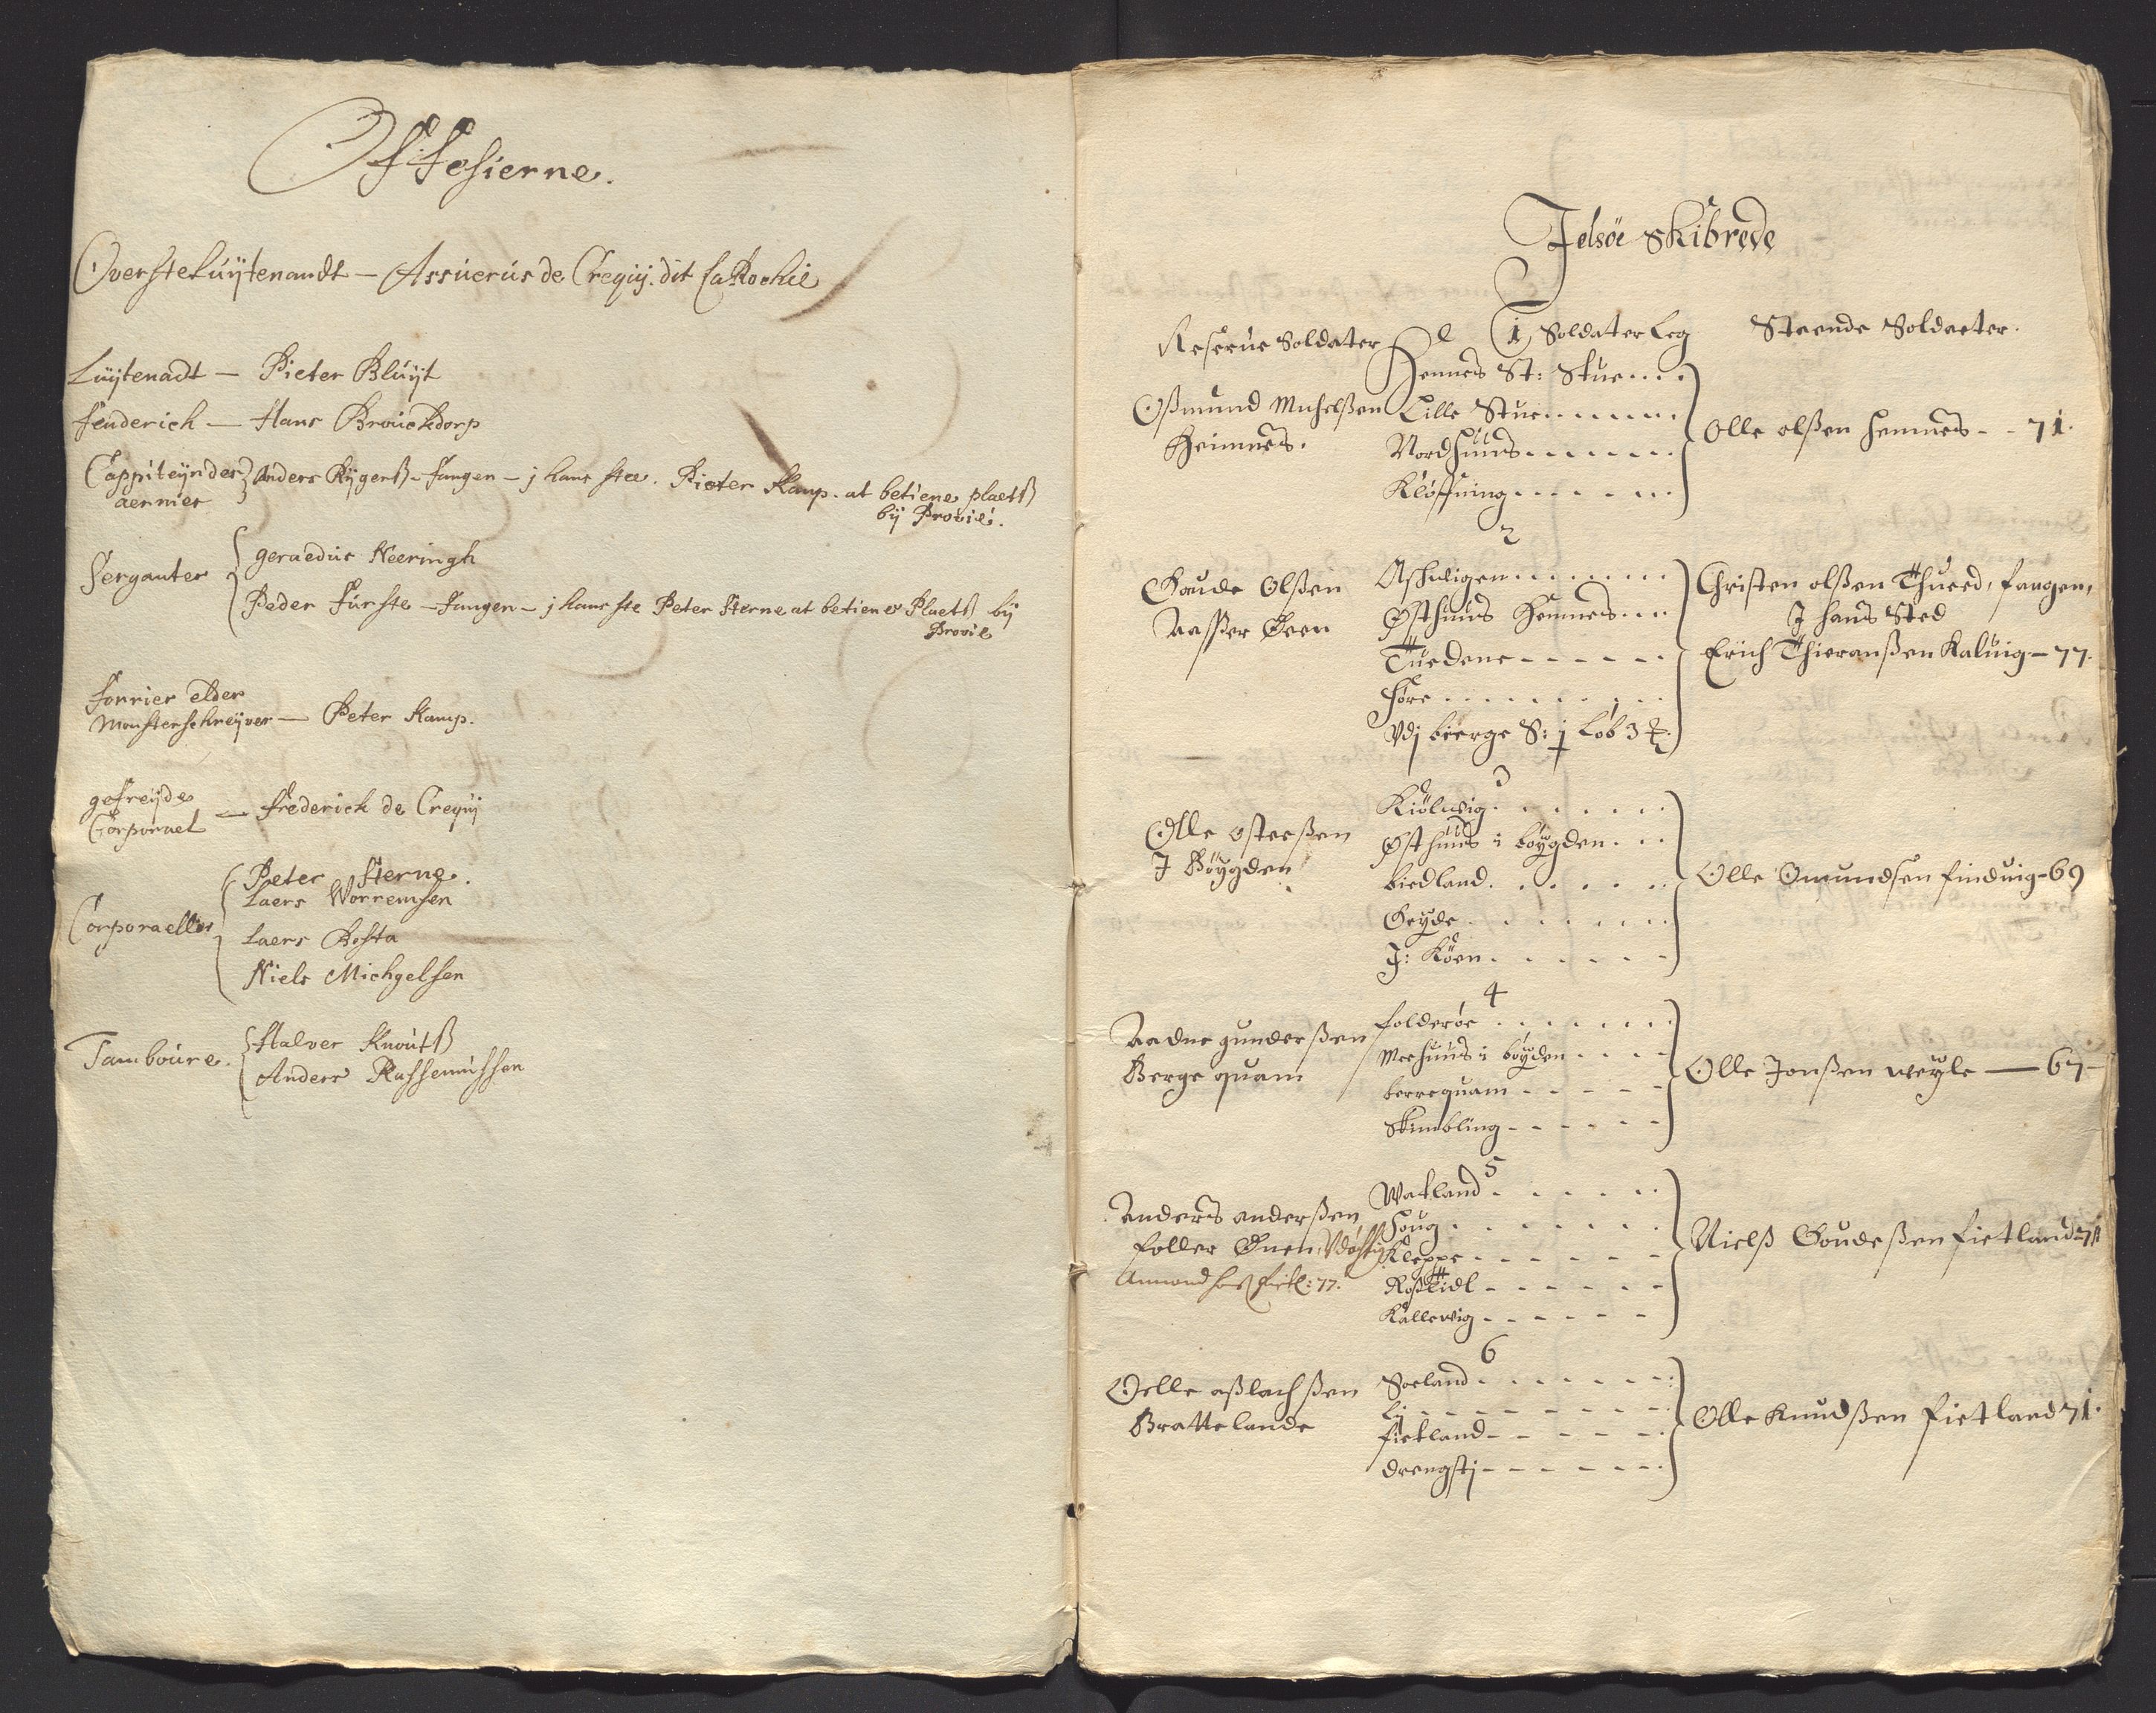 Offesierne.
Oversteluÿtenandt — Assuerus de Crequy. dit La Rochie
Luÿtenadt — Pieter Bluÿt
Fenderich — Hans Brouckdorp
Cappiteÿnder aermer Anders Rÿgertß - fangen - j hans stee. Pieter Kamp. at betiene plaetß
bij Provie.
Serganter
geraedus Neeringh
Peder Furste - fangen - j hans ste Peter Sterne at betiene Plaetß bij
Provie
Forrier elder
Monsterschreÿver — Peter Kamp.
gefreÿde
Corporael — Frederich de Crequy
Corporaeller
Peter Sterne.
Laers Worremsen
Laers Bosta
Niels Michgelsen
Tamboure.
Halver Knoutß
Anders Rassemussen
Jelsöe Skibrede
Reserue Soldater
1 Soldater Leg
Staende Soldaeter.
Oßmund Michelßen
Heimnes.
Hemnes St: Stue
Lille Stue
Nordhuus
Kløfning
Olle olßen Hemnes - - 71.
2
Goude Olßen
Aasser Øeen
Ashwigen
Østhuus Hemnes
Tuedene
Høre
Vdj bierge S: j Løb 3
Christen olßen Thueed, fangen,
J hans Sted
Erich Thieranßen Kaluig - 77.
3
Olle osteeßen
J Bøygden
Kiølwig
Østhuus i bøygden
biedland
Geyde
J: Køen
Olle Omundsen finduig - 69
4
Aadne gunderßen
Berge quam
folderøe
Meehuus i bøyden
berrequam
Skimbling
Olle Jonßen weyle — 67 -
5
Anders anderßen
foller Ønen, Vdøfti
Amond
77.
Watland
Houg
Kleppe
Roßtidl
Kallewig
Nielß Goudeßen fietland 71
6
Oelle aßlachßen
Brattelande
Soeland
Li
fietland
drengstj
Olle Knudßen fietland 71.